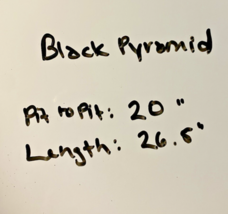 Black Pyramid
Pit to Pit: 20 "
Length: 26.5"